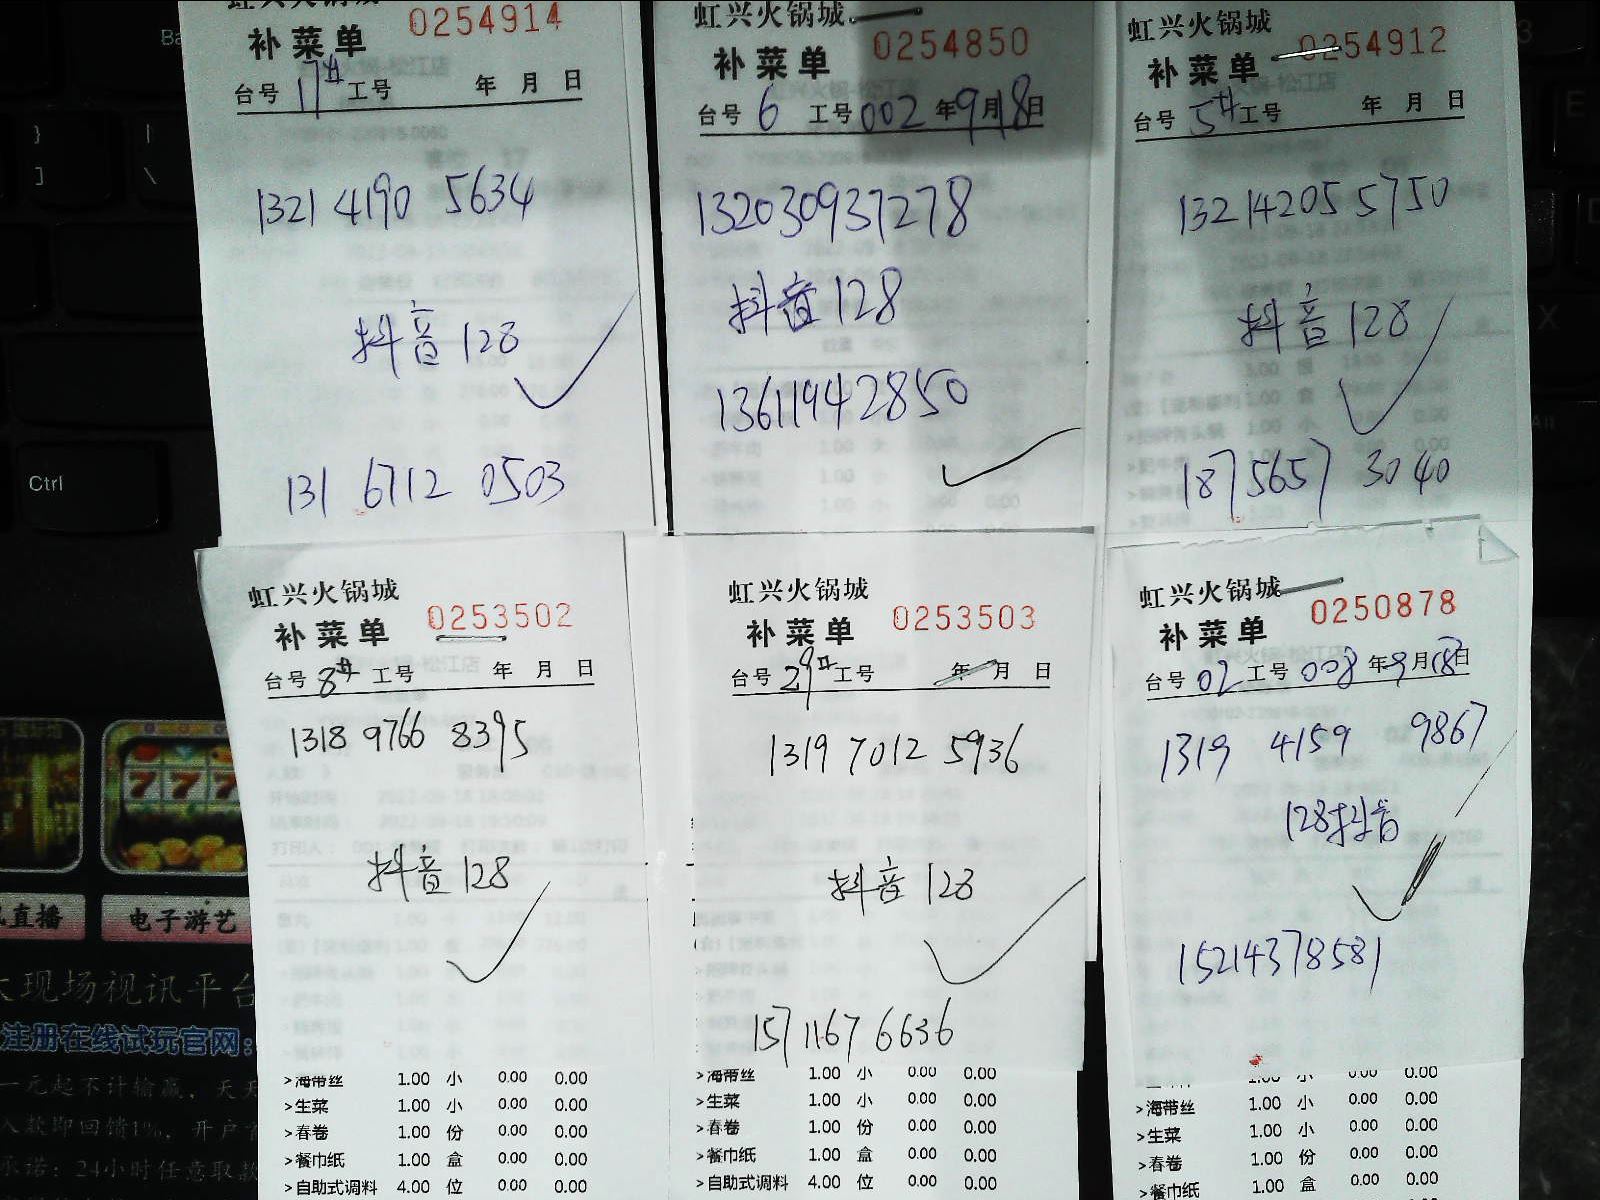 虹兴火锅城
补菜单 0254914
台号 17# 工号 年 月 日
1321 4190 5634
抖音 128
131 6712 0503
虹兴火锅城
补菜单 0254850
台号 6 工号 002 年 9月18日
132030937278
抖音 128
13611942850
虹兴火锅城
补菜单 0254912
台号 5# 工号 年 月 日
132142055750
抖音 128
187 5657 3040
虹兴火锅城
补菜单 0253502
台号 8# 工号 年 月 日
1318 9766 8395
抖音 128
>海带丝 1.00 小 0.00 0.00
>生菜 1.00 小 0.00 0.00
>春卷 1.00 份 0.00 0.00
>餐巾纸 1.00 盒 0.00 0.00
>自助式调料 4.00 位 0.00 0.00
虹兴火锅城
补菜单 0253503
台号 29# 工号 年 月 日
1319 7012 5936
抖音 128
157 1167 6636
>海带丝 1.00 小 0.00 0.00
>生菜 1.00 小 0.00 0.00
>春卷 1.00 份 0.00 0.00
>餐巾纸 1.00 盒 0.00 0.00
>自助式调料 4.00 位 0.00 0.00
虹兴火锅城
补菜单 0250878
台号 02 工号 008 年 9月18日
1319 4159 9867
128抖音
15214378581
>海带丝 1.00 小 0.00 0.00
>生菜 1.00 小 0.00 0.00
>春卷 1.00 份 0.00 0.00
>餐巾纸 1.00 盒 0.00 0.00
Ctrl
777
直播
电子游艺
现场视讯平台
注册在线试玩官网:
一元起不计输赢，天天
入款即回馈1%，开户
承诺：24小时任意取款